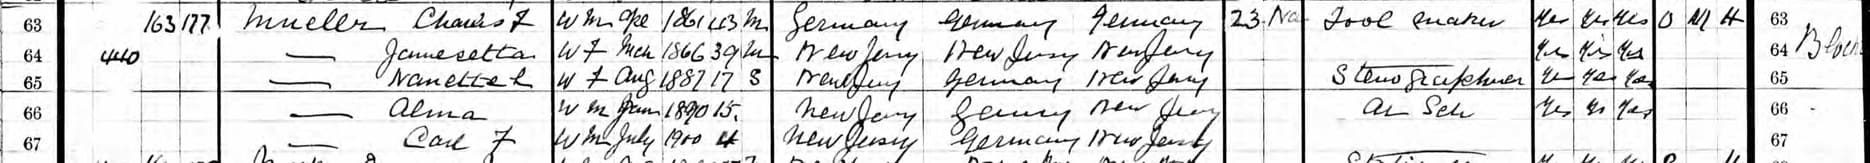 63 163 177 Mueller Charles F W M Ape 1861 43 M Germany Germany Germany 23 Na Tool maker Yes Yes Yes O M H 63
64 440 — Jamesetta W F Mch 1866 39 M New Jersy New Jersy New Jersy Yes Yes Yes 64
65 — Nanette L W F Aug 1887 17 S New Jersy Germany New Jersy Stenographer Yes Yes Yes 65
66 — Alma W M Jan 1890 15 New Jersy Germy New Jersy At Sch Yes Yes Yes 66
67 — Carl F W M July 1900 4 New Jersey Germany New Jersey 67